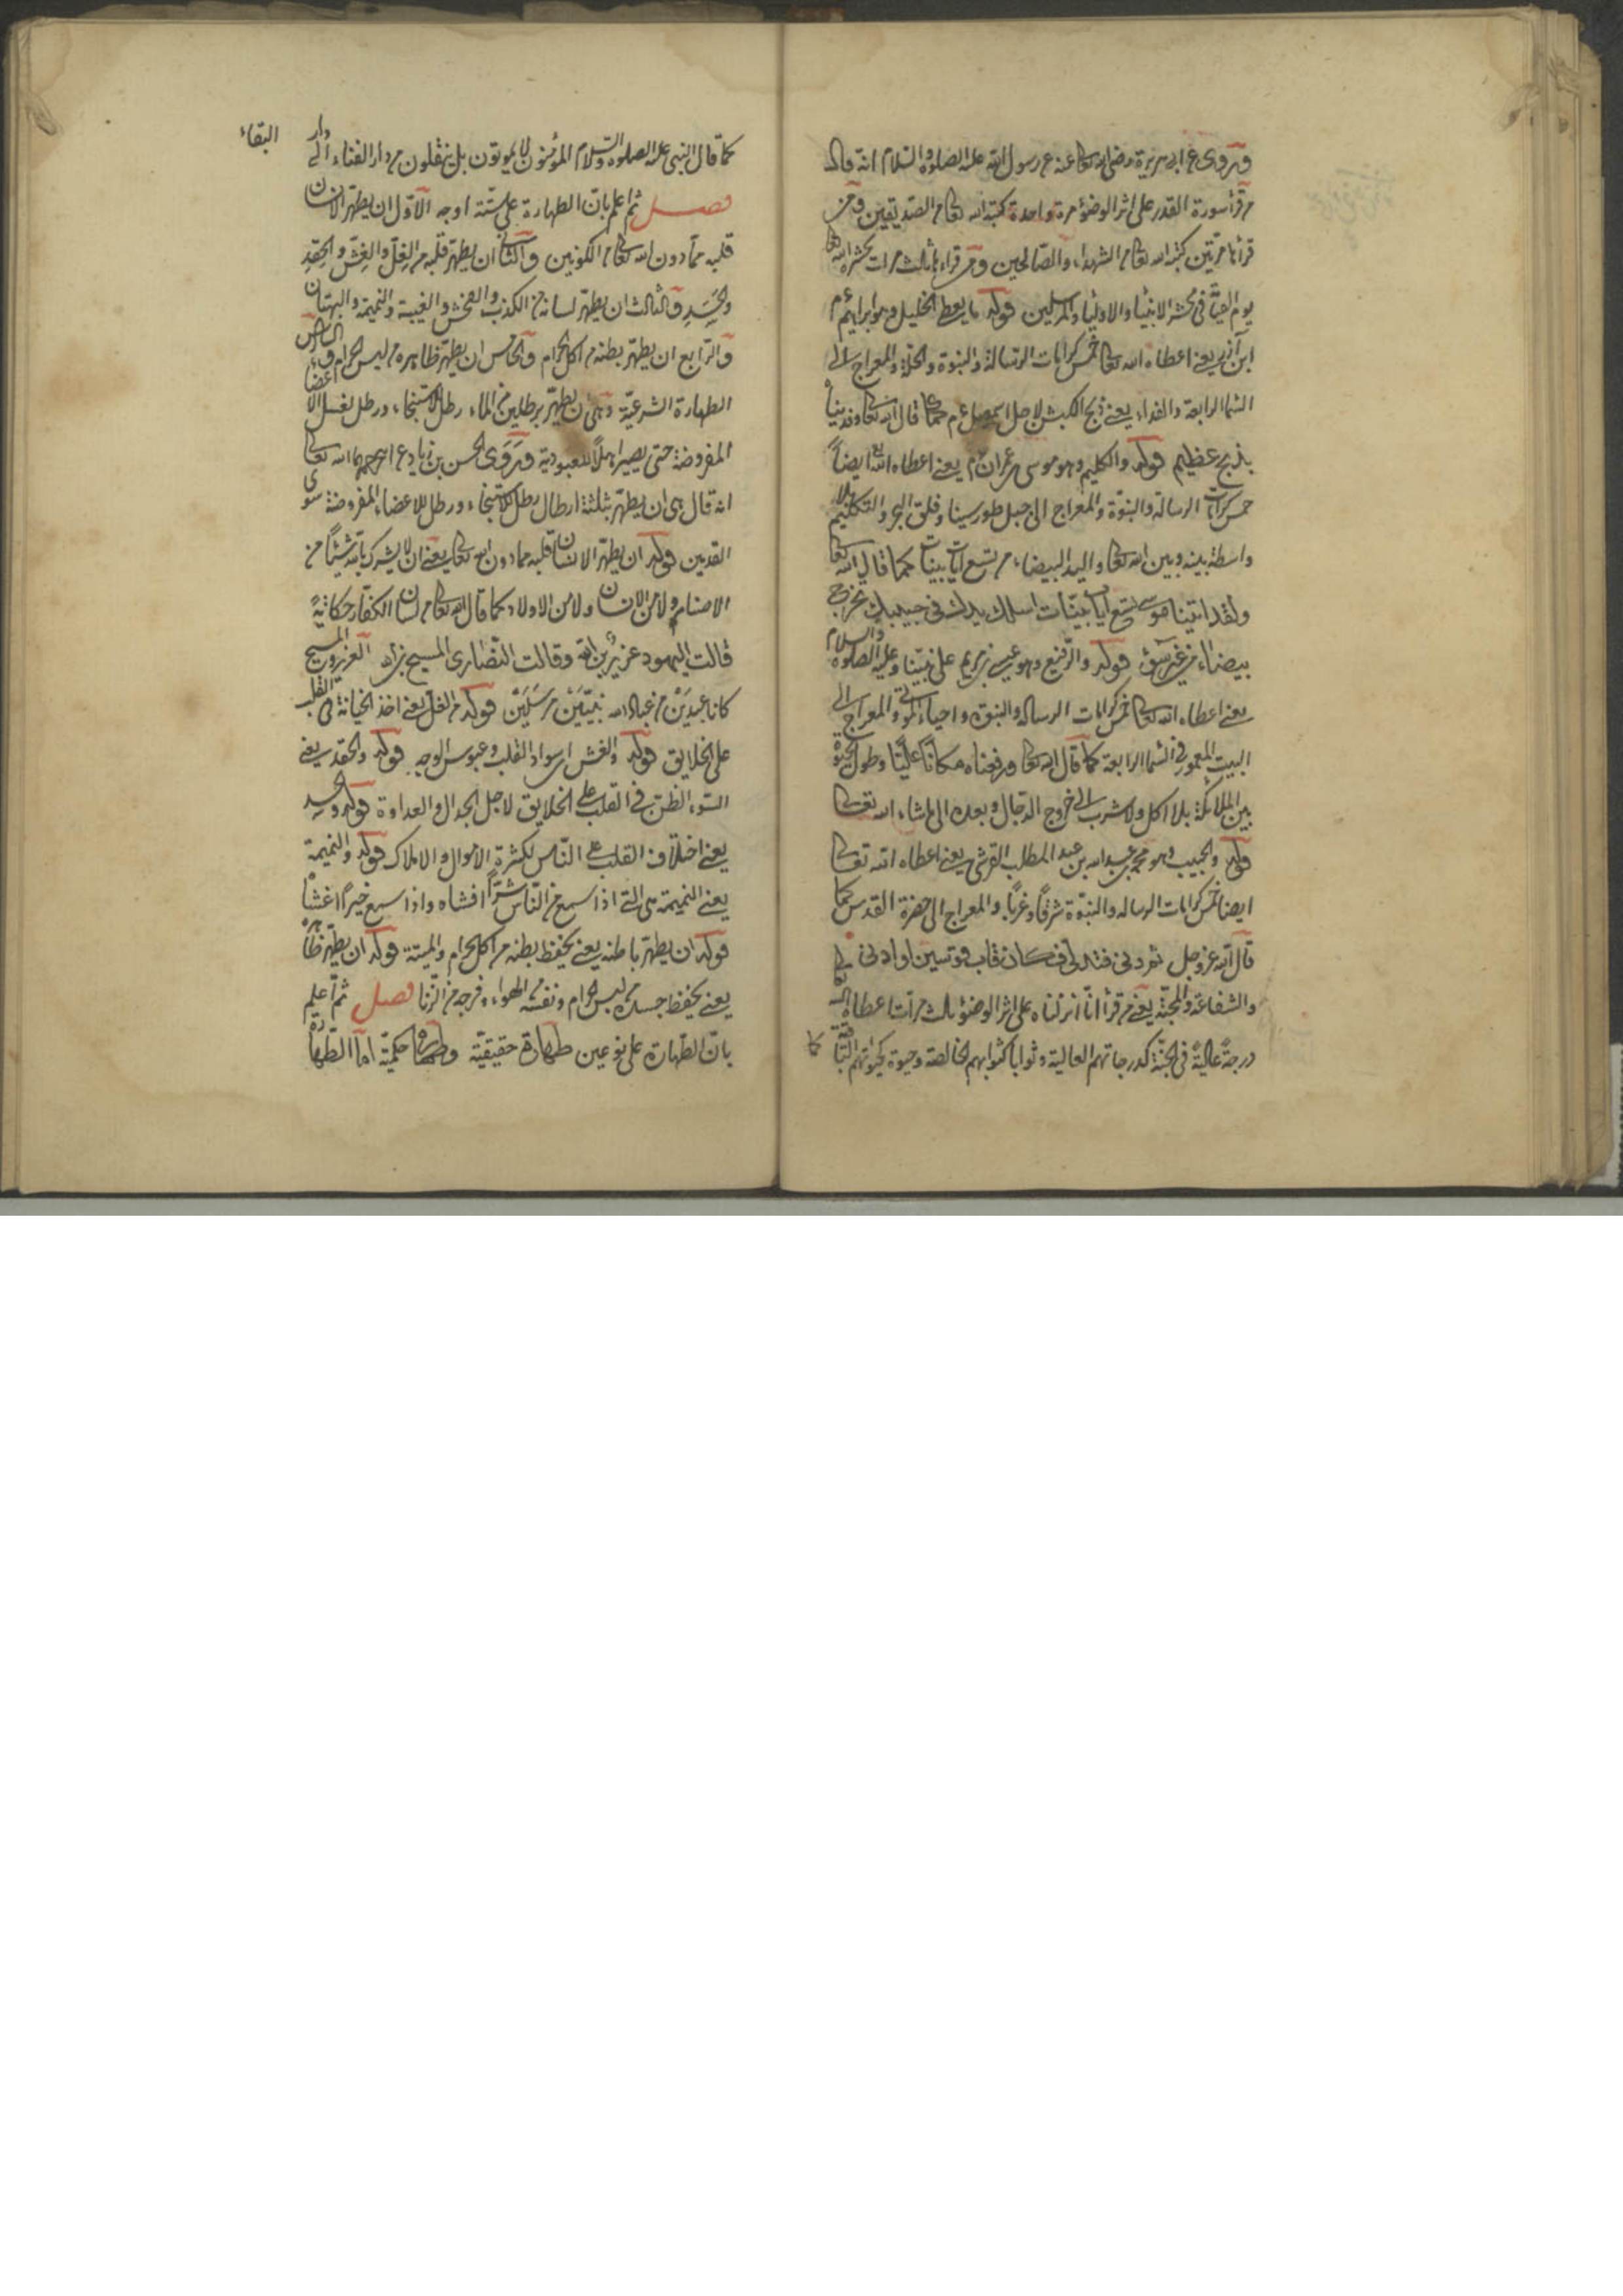 وروى عن ابى هريرة رضى الله تعا عنه عن رسول الله عليه الصلوة والسلام انه قال
من قرأ سورة القدر على اثر الوضوء مرة واحدة كتبه الله تعا من الصديقين ومن
قرأها مرتين كتبه الله تعا من الشهداء والصالحين ومن قراءها ثالث مرات يحشره الله تعا
يوم القيمة فى محشر الانبياء والاولياء والمرسلين قوله ما يعط الخليل وهو ابراهيم ءم
ابن آذر يعنى اعطاه الله تعا خمس كرامات الرسالة والنبوة والخلة والمعراج الى
السماء الرابعة والفداء يعنى ذبح الكبش لاجل اسمعيل ءم كما قال الله تعا وفديناه
بذبح عظيم قوله والكليم وهو موسى بن عمران ءم يعنى اعطاه الله تع ايضاً
خمس كرامات الرسالة والنبوة والمعراج الى جبل طور سينا وفلق البحر والتكليم بلا
واسطة بينه وبين الله تعا واليد البيضاء من تسع آيات بينات كما قال الله تعا
ولقد اتينا موسى تسع آيات بينات اسلك يدك فى جيبك تخرج
بيضاء من غير سوء قوله والرفيع وهو عيسى بن مريم على نبينا وعليه الصلوة والسلام
يعنى اعطاه الله تعا خمس كرامات الرسالة والنبوة واحياء الموتى والمعراج الى
البيت المعمور فى السماء الرابعة كما قال الله تعا ورفعناه مكاناً علياً وطول الحيوة
بين الملائكة بلا اكل ولا شرب الى خروج الدجال وبعده الى ما شاء الله تعا
قوله والحبيب وهو محمد بن عبد الله بن عبد المطلب القرشى يعنى اعطاه الله تعا
ايضا خمس كرامات الرسالة والنبوة شرقاً وغرباً والمعراج الى حضرة القدس كما
قال الله عز وجل ثم دنى فتدلى فكان قاب قوسين او ادنى
والشفاعة والمحبة يعنى من قرأ انا انزلناه على اثر الوضوء ثالث مرات اعطاه الله تعا
درجة عالية فى الجنة كدرجاتهم العالية وثوابا كثوابهم الخالصة وحيوة كحيوتهم الباقية
كما
كما قال النبى عليه الصلوة والسلام المؤمنون لا يموتون بل ينقلون من دار الفناء الى دار البقاء
فصل ثم اعلم بان الطهارة على ستة اوجه الاول ان يطهر الانسان
قلبه مما دون الله تعا من الكونين والثانى ان يطهر قلبه من الغل والغش والحقد
والحسد والثالث ان يطهر لسانه من الكذب والفحش والغيبة والنميمة والبهتان
والرابع ان يطهر بطنه من اكل الحرام والخامس ان يطهر ظاهره من لبس الحرام والسادس
الطهارة الشرعية وهى ان يطهر برطلين من الماء رطل للاستنجاء ورطل لغسل الاعضاء
المفروضة حتى يصير اهلاً للعبودية وروى الحسن بن زياد عن رحمهما الله تعا
انه قال هى ان يطهر بثلثة ارطال رطل للاستنجاء ورطل للاعضاء المفروضة سوى
القدمين قوله ان يطهر الانسان قلبه مما دون الله تعا يعنى ان لا يشرك بالله شيئاً من
الاصنام ولا من الانسان ولا من الاولاد كما قال الله تعا من لسان الكفار حكاية
قالت اليهود عزير ابن الله وقالت النصارى المسيح بن الله العزير والمسيح
كانا عبدين من عباد الله نبيين مرسلين قوله من الغل يعنى اخذ الخيانة فى القلب
على الخلايق قوله والغش اى سواد القلب وعبوس الوجه قوله والحقد يعنى
السوء الظن فى القلب على الخلايق لاجل الجدال والعداوة قوله والحسد
يعنى اختلاف القلب على الناس لكثرة الاموال والاملاك قوله والنميمة
يعنى النميمة هى التى اذا سمع من الناس شراً افشاه واذا سمع خيراً
قوله ان يطهر باطنه يعنى يحفظ بطنه من اكل الحرام والميتة قوله ان يطهر ظاهره
يعنى يحفظ جسده من لبس الحرام ونفسه من الهواء وفرجه من الزنا فصل ثم اعلم
بان الطهارة على نوعين طهارة حقيقية وطهارة حكمية اما الطهارة